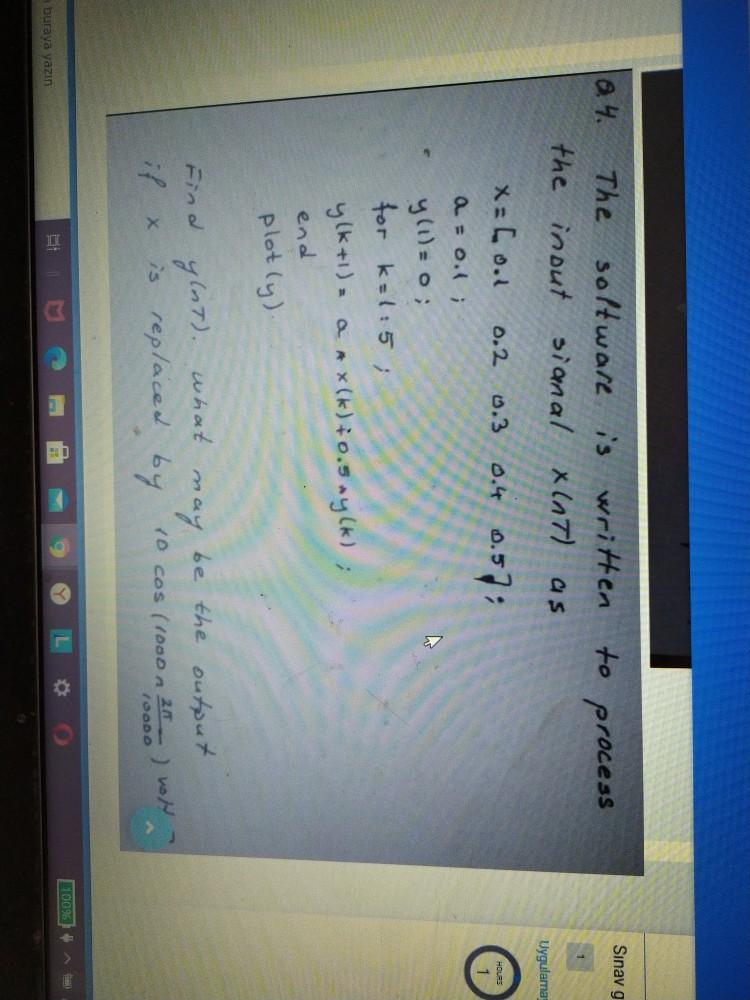 Q.4. The software is written to process
the input signal x(nT) as
x = [ 0.1 0.2 0.3 0.4 0.5 ];
a = 0.1 ;
y(1) = 0 ;
for k=1:5 ;
y(k+1) = a * x(k)+0.5*y(k) ;
end
plot(y).
Find y(nT). what may be the output
if x is replaced by 10 cos (1000 n 2π/10000 )
buraya yazın
100%
Sınav g
1
Uygulama
HOURS
1